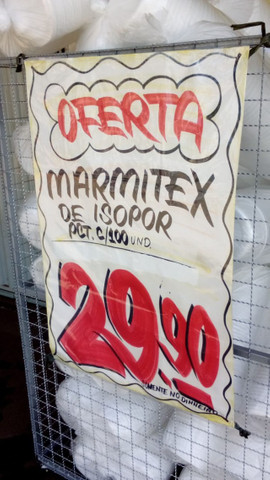 OFERTA
MARMITEX
DE ISOPOR
PCT. C/100 UND.
29,90